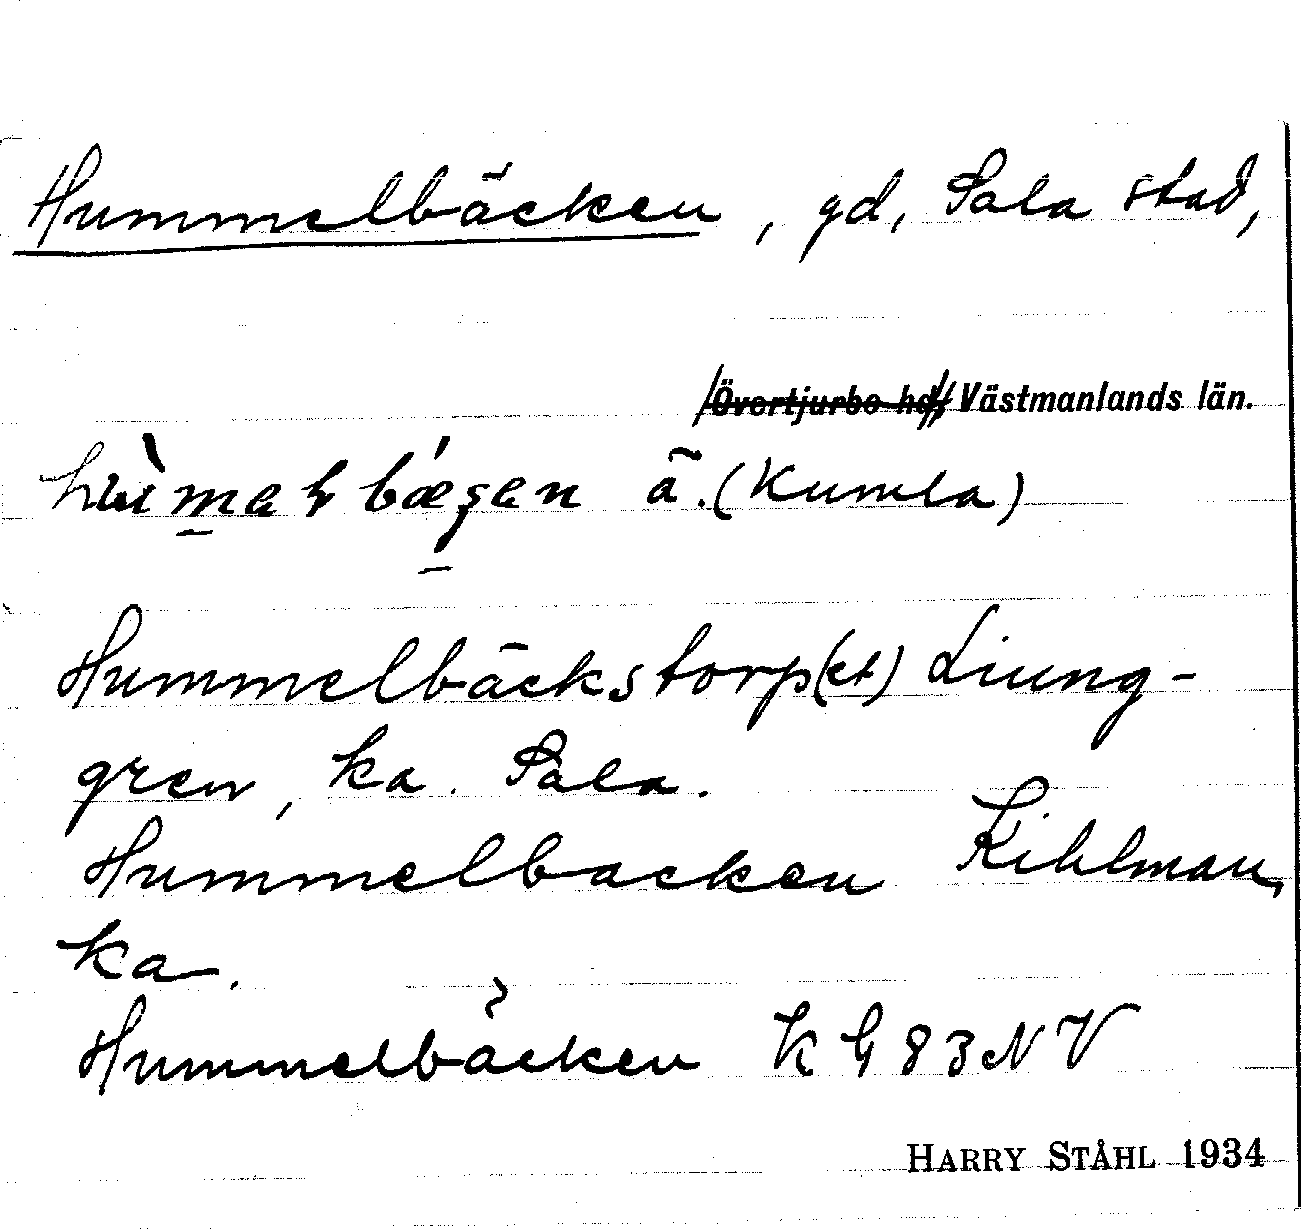 Hummelbäcken, gd, Sala stad,
/Övertjurbo hd,/ Västmanlands län.
ã. (Kumla)
Hummelbäckstorp(et) Liung-
gren, ka. Sala.
Hummelbacken Kihlman,
ka.
Hummelbäcken KG 83 NV
HARRY STÅHL 1934